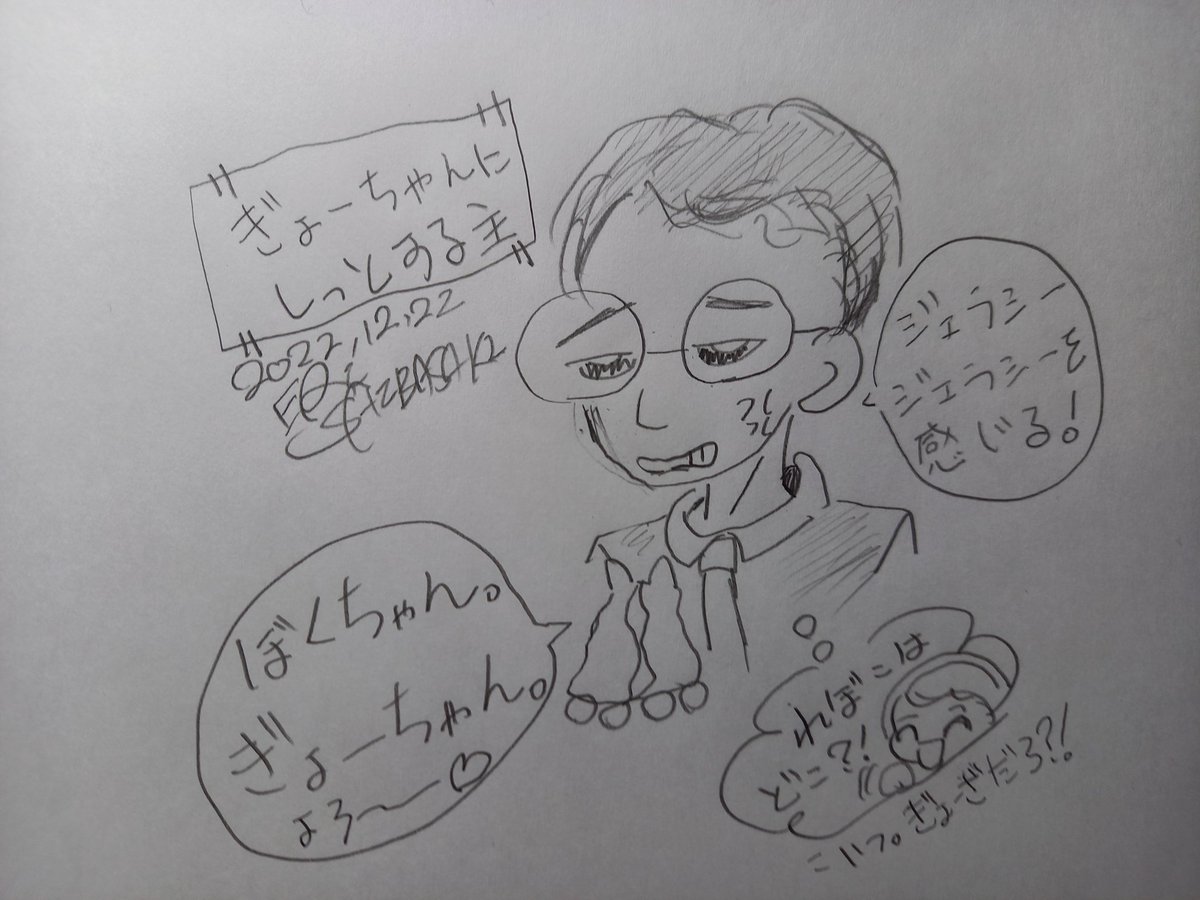 ぎょーちゃんに
しっとする主
2022,12,22
ジェラシー
ジェラシーを
感じる!
ぼくちゃん。
ぎょーちゃん。
よろ〜♡
ればこは
どこ?!
こいつ。ぎょーざだろ?!